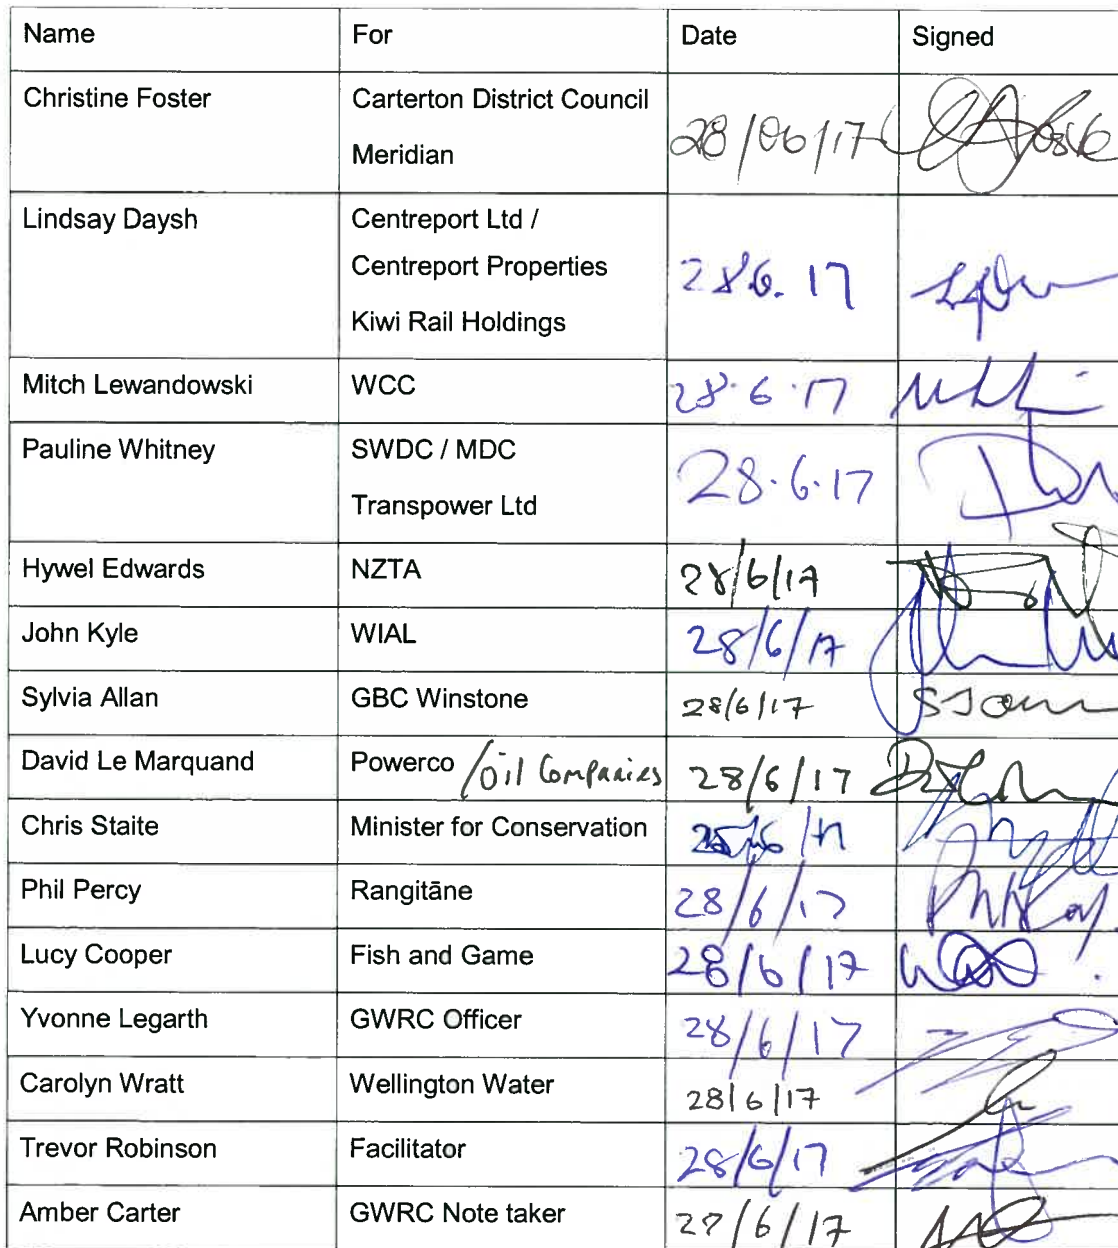 Name For Date Signed
Christine Foster Carterton District Council 28/06/17
Meridian
Lindsay Daysh Centreport Ltd /
Centreport Properties 28.6.17
Kiwi Rail Holdings
Mitch Lewandowski WCC 28.6.17
Pauline Whitney SWDC / MDC 28.6.17
Transpower Ltd
Hywel Edwards NZTA 28/6/17
John Kyle WIAL 28/6/17
Sylvia Allan GBC Winstone 28/6/17
David Le Marquand Powerco /Oil Companies 28/6/17
Chris Staite Minister for Conservation
Phil Percy Rangitāne 28/6/17
Lucy Cooper Fish and Game 28/6/17
Yvonne Legarth GWRC Officer 28/6/17
Carolyn Wratt Wellington Water 28/6/17
Trevor Robinson Facilitator 28/6/17
Amber Carter GWRC Note taker